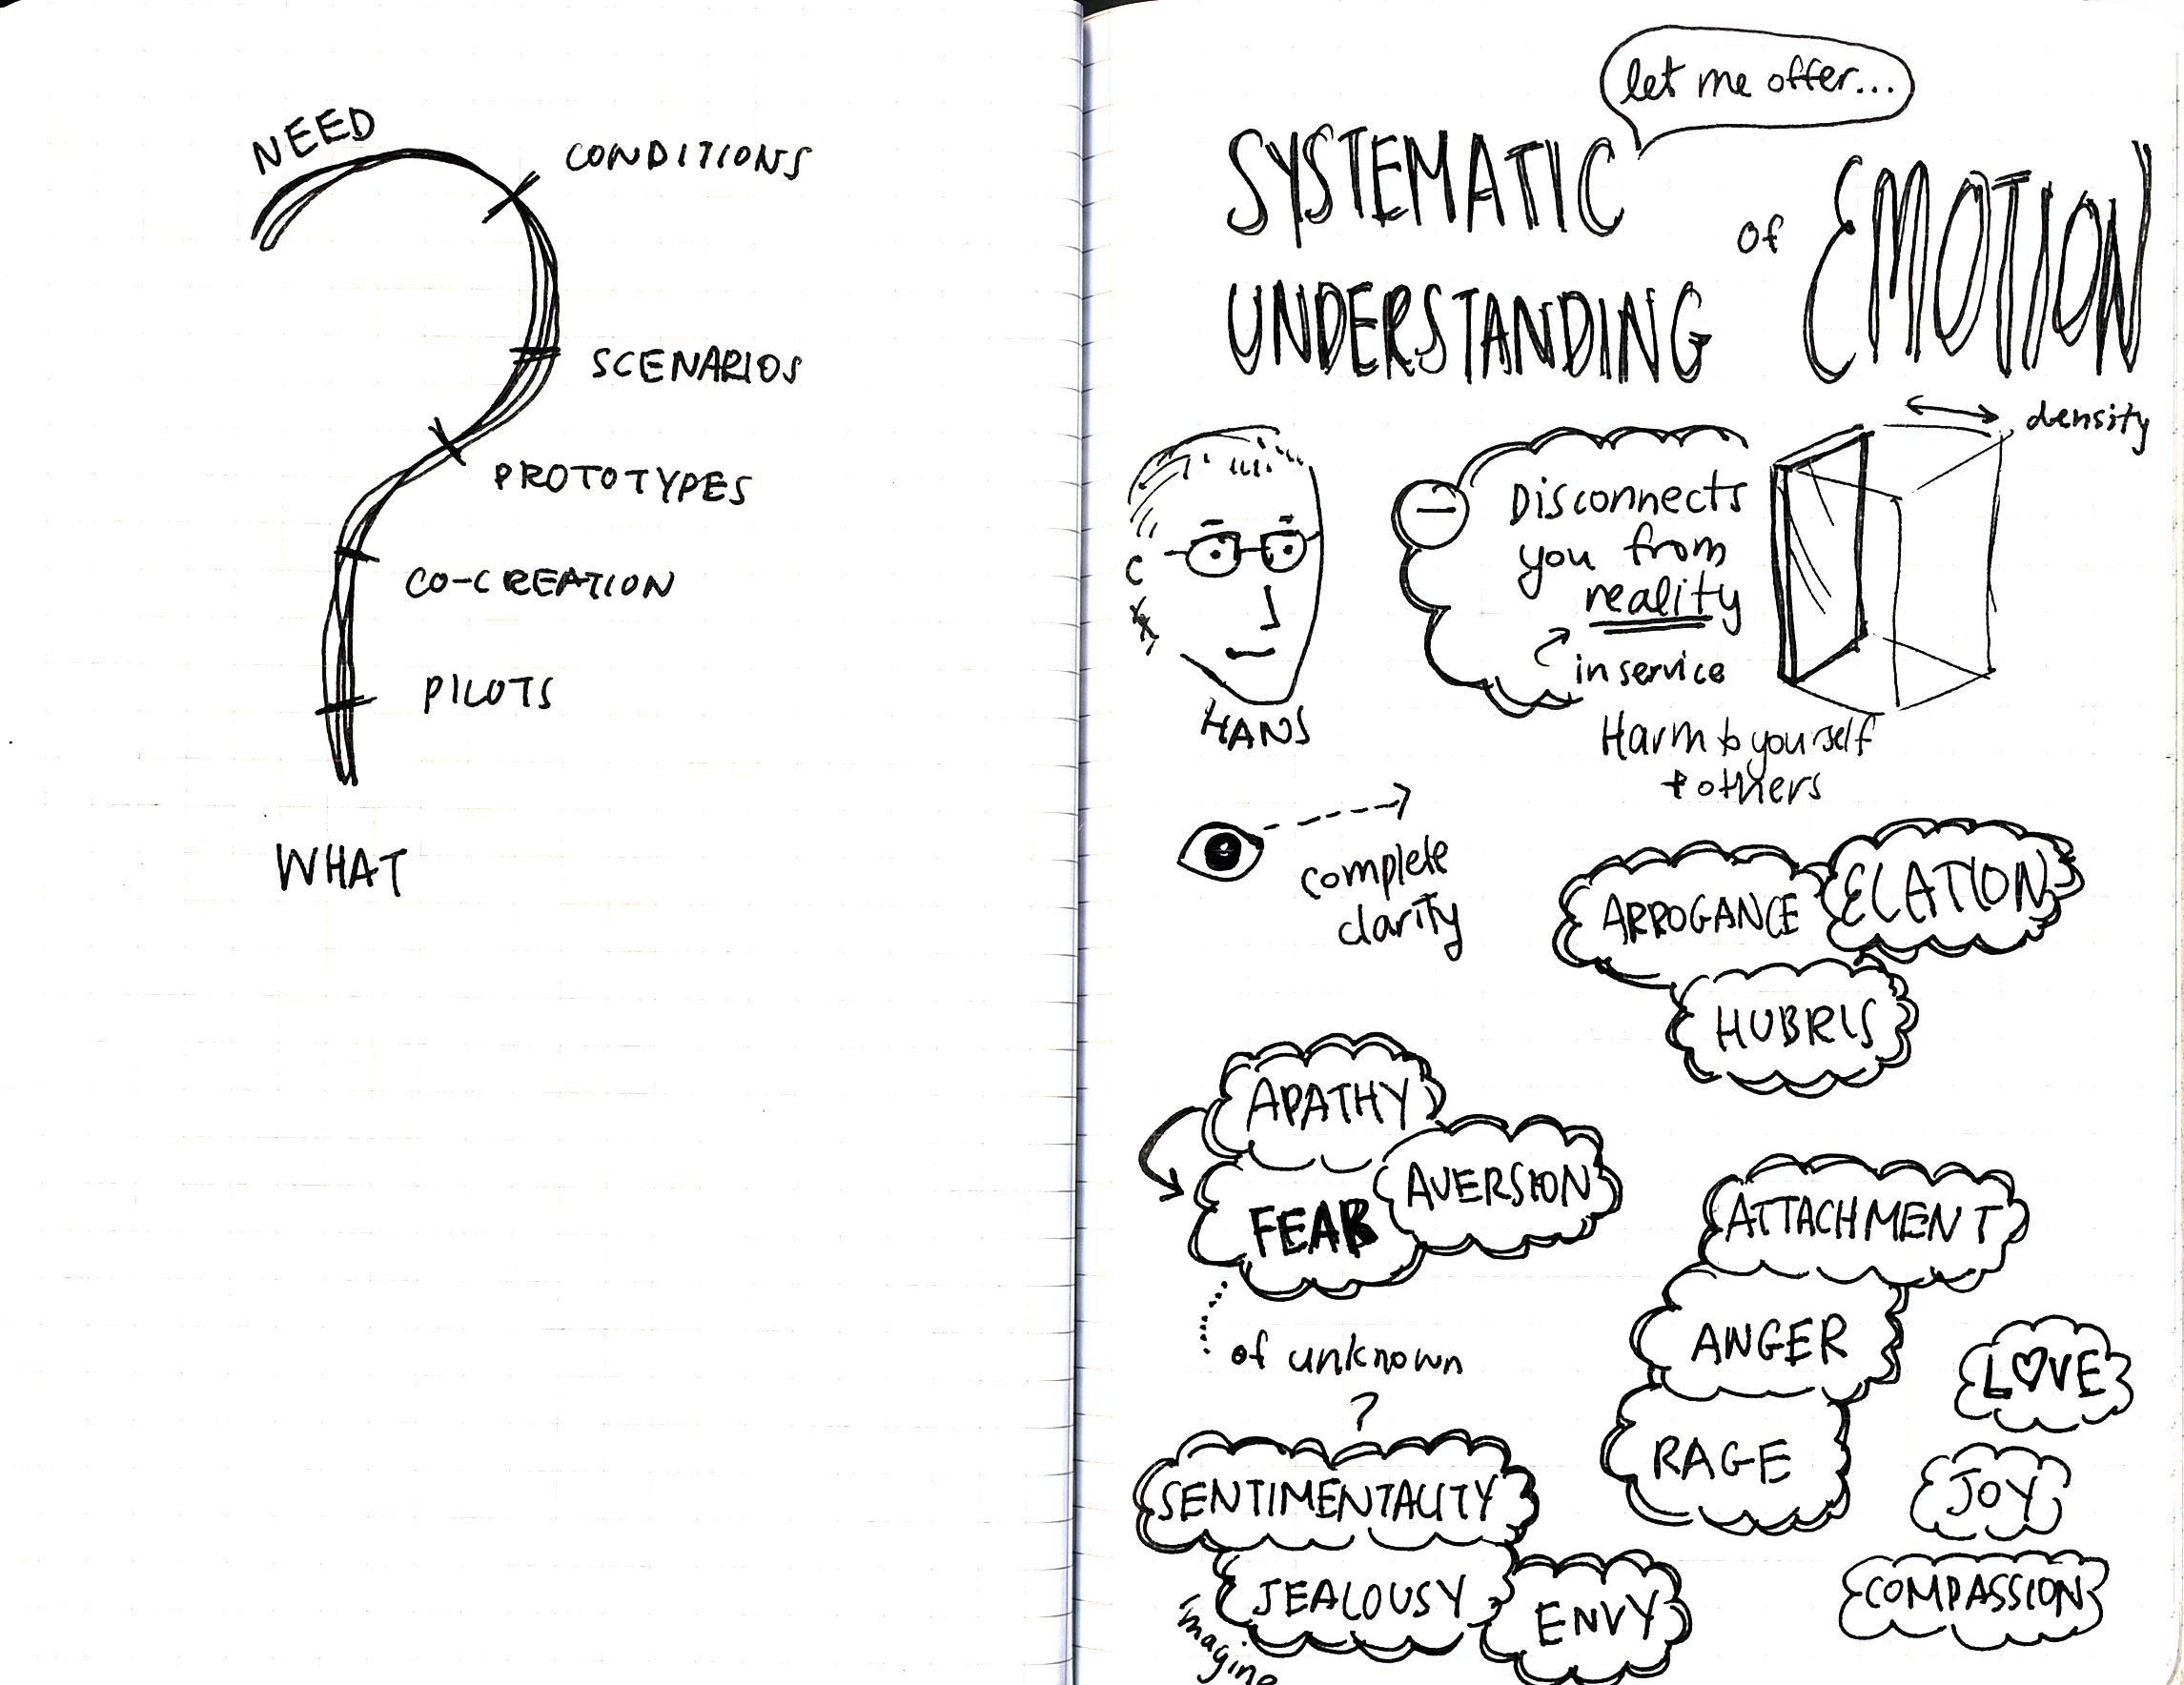 NEED
CONDITIONS
SCENARIOS
PROTOTYPES
CO-CREATION
PILOTS
WHAT
let me offer...
SYSTEMATIC
UNDERSTANDING
of
EMOTION
HANS
Disconnects
you from
reality
in service
density
Harm to yourself
+ others
complete
clarity
ARROGANCE
ELATION
HUBRIS
APATHY
FEAR
AVERSION
of unknown
?
ATTACHMENT
ANGER
RAGE
LOVE
JOY
COMPASSION
SENTIMENTALITY
JEALOUSY
ENVY
imagine